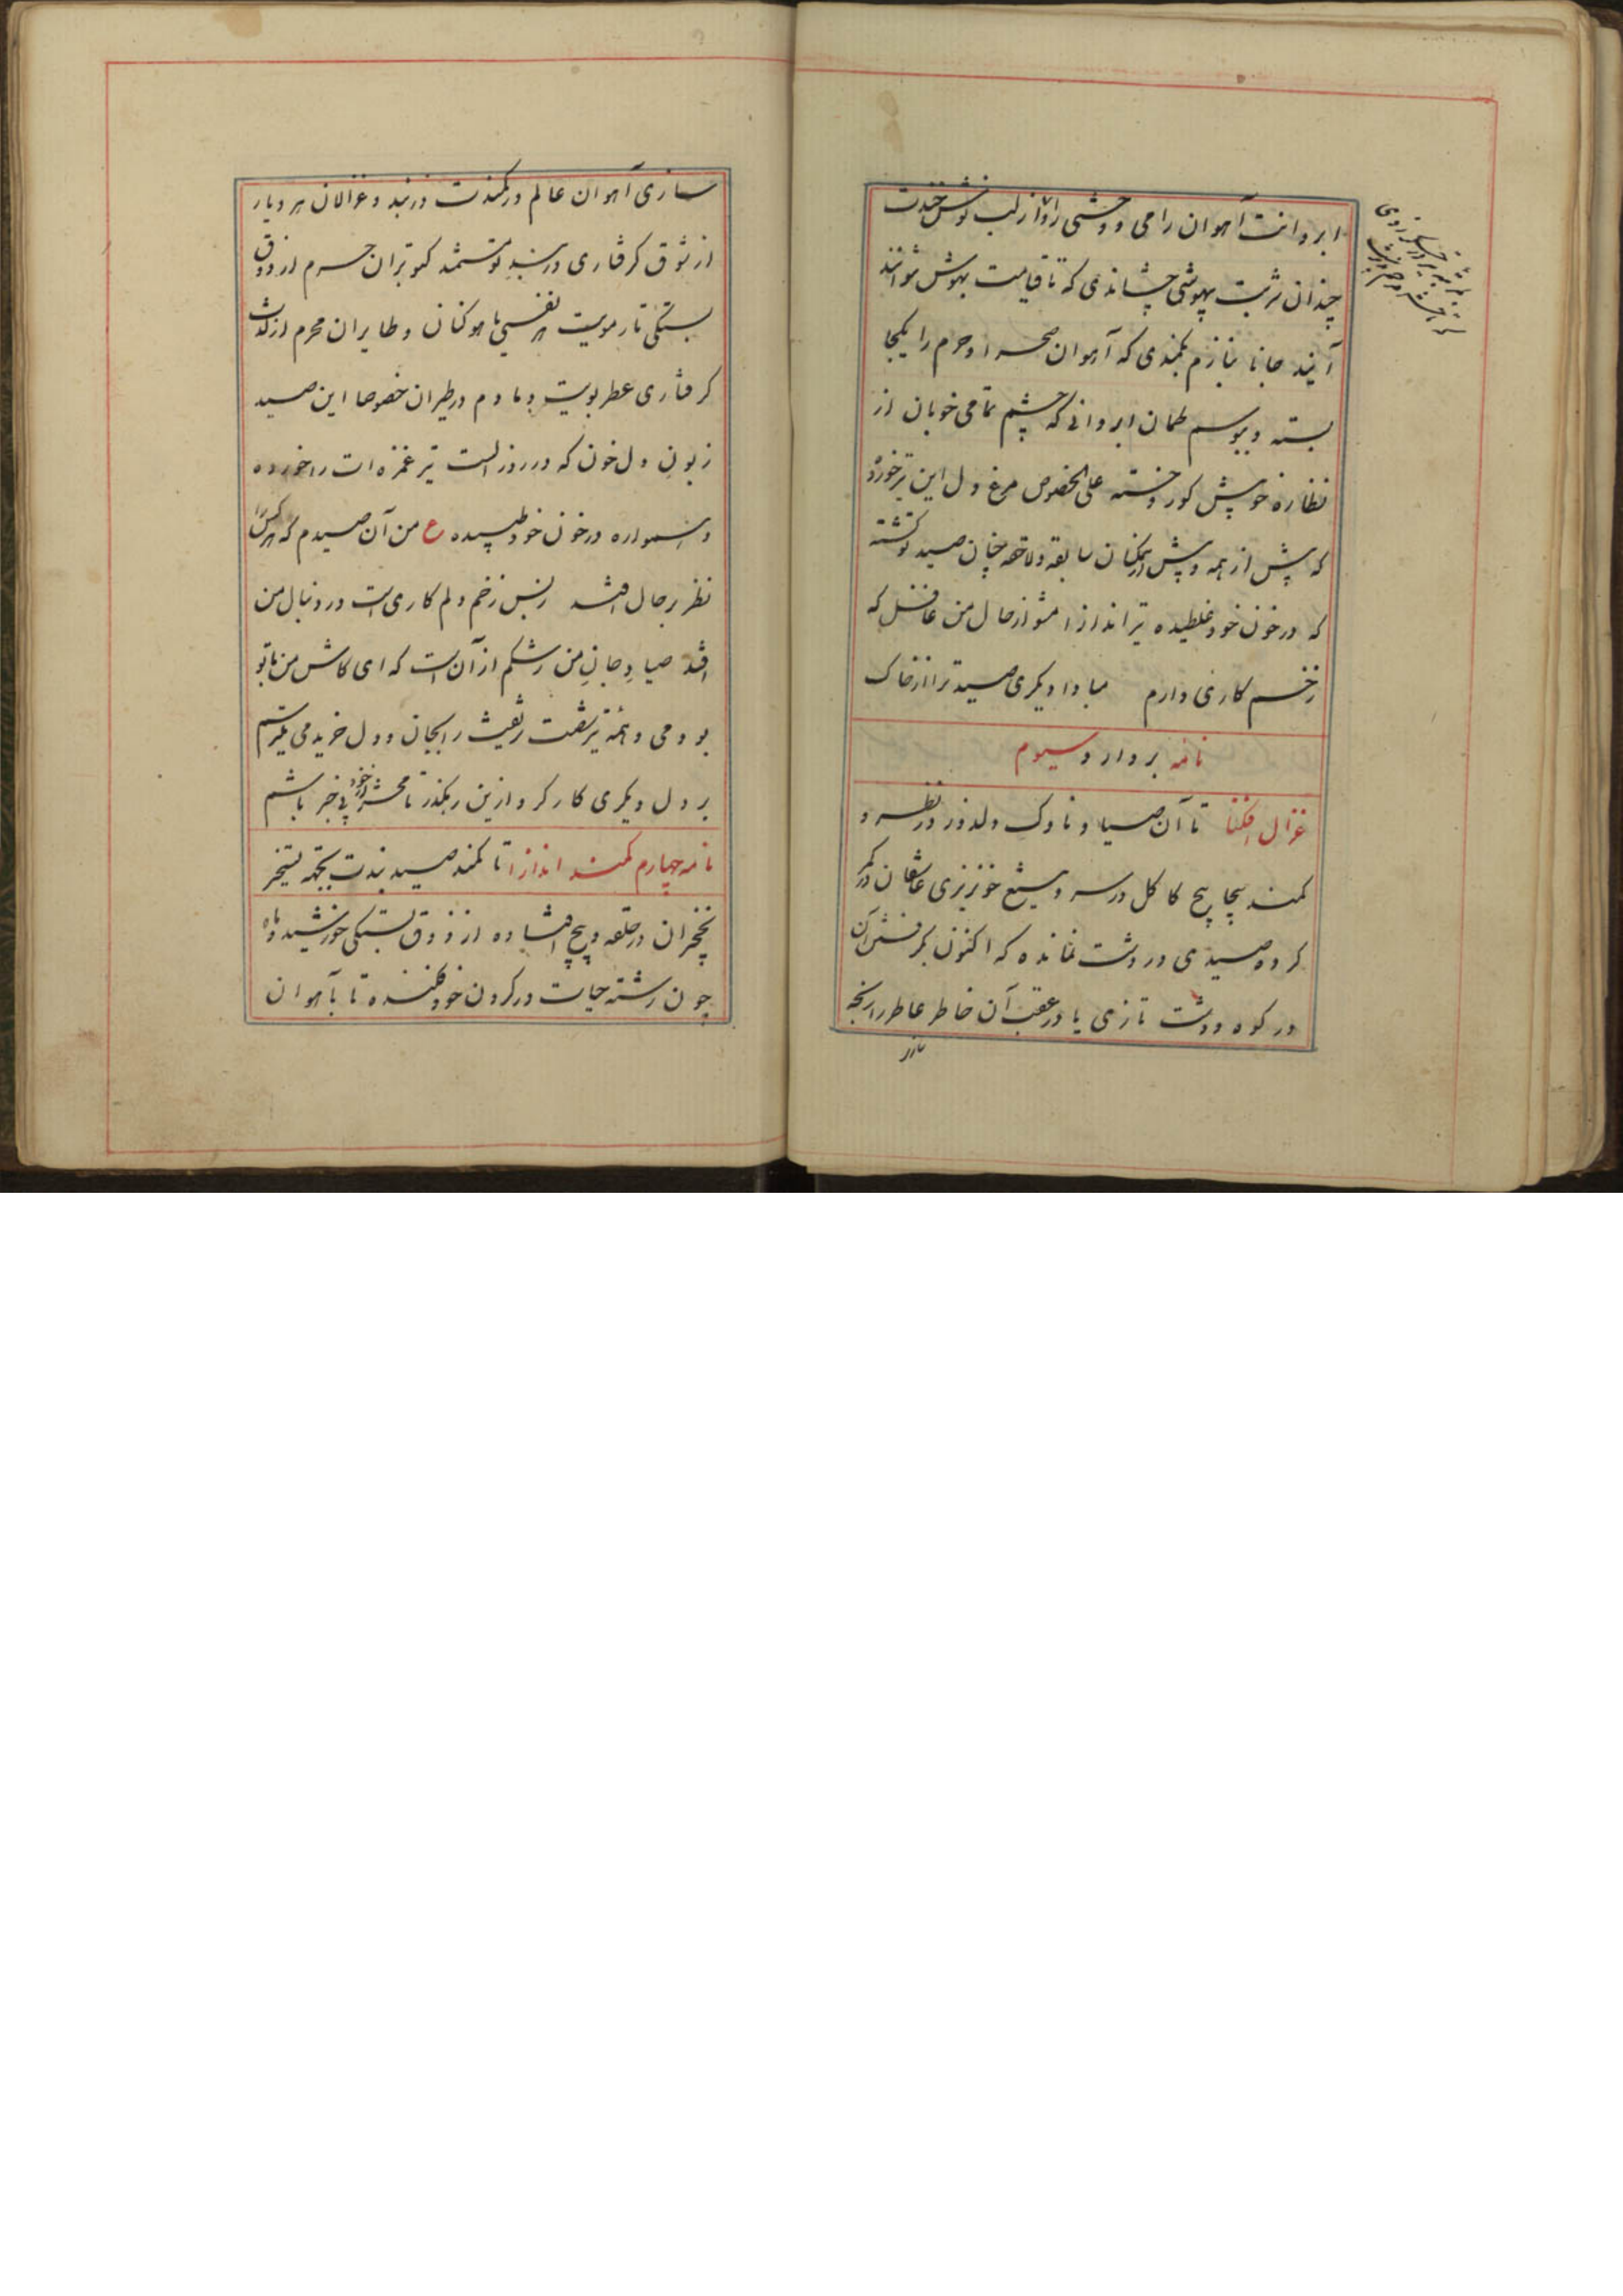 ابروانت آهوان رامی و وحشی را از لب نوش خندت
چندان شربت بیهوشی چشاندی که تا قیامت بهوش نتوانند
آیند جانا بنازم کمندی که آهوان صحرا و حرم را یکجا
بسته و ببوسم کمان ابروانی که چشم تمامی خوبان از
نظاره خویش کور دوخته علی الخصوص مرغ دل این تیر خورده
که پیش از همه و بیش از همکنان سابقه و لاحقه چنان صید تو گشته
که در خون خود غلطیده تیراندازا مشو از حال من غافل که
زخم کاری دارم مبادا دیگری صید ترا از خاک بردارد
نامه سیوم
غزال افکنا تا آن صیاد ناوک دلدوز در نظر و
کمند پیچاپیچ کاکل در سر و تیغ خونریزی عاشقان در کمر
کرده صیدی در دشت نمانده که اکنون بگرفتن آن
در کوه و دشت تازی یا در عقب آن خاطر عاطر را رنجه
سازی
سازی آهوان عالم در کمندت در بند و غزالان هر دیار
از شوق گرفتاری در بند تو مستمند کبوتران حرم از ذوق
بستگی تار مویت هر نفسی یاهو کنان و طایران محرم از لذت
گرفتاری عطر بویت دمادم در طیران خصوصا این صید
زبون دل خون که در روز الست تیر غمزه ات را خورده
و همواره در خون خود طپیده ع من آن صیدم که هر کس را
نظر بر حال افتد ز بس زخم دلم کاری است در دنبال من
افتد صیاد جان من رشکم از آن است که ای کاش من با تو
بودمی و همه تیر شفقت رفیقت را بجان و دل خریدمی میترسم
بر دل دیگری کار کرد و ازین رهگذر تا محشر از خود بی خبر باشم
نامه چهارم کمند اندازا تا کمند صید بندت بجهة تسخیر
نخچیران در حلقه و پیچ افتاده از ذوق بستگی خورشید و ماه
چون رشته حیات در گردن خود فکنده تا بآهوان